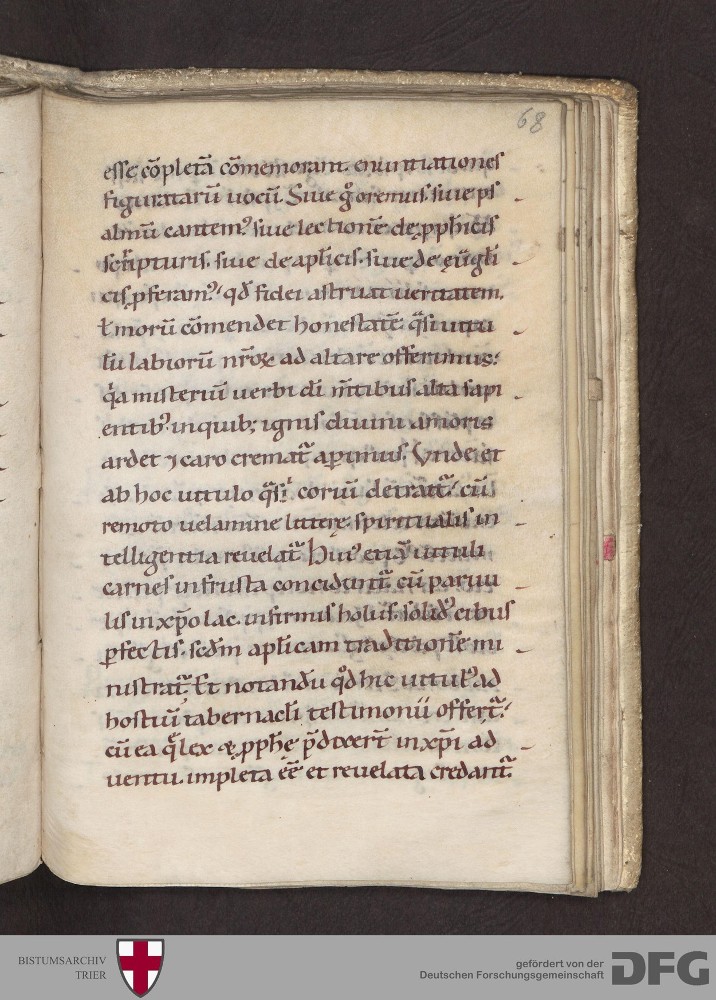 68
esse cōpletā cōmemorant. enuntiationes
figuratarū uocū. Siue qͦ oremus. siue ps
almū cantemꝰ siue lectionē de ꝓph̄icis
scͥpturis. siue de apl̄icis. siue de eu͞gli
cis ꝓferamꝰ. qđ fidei astruat ueritatem.
ł morū cōmendet honestatē. qͣsi uitu
lū labiorū nr̄oꝝ ad altare offerimus.
qͥa misteriū uerbi dī m̄tibus alta sapi
entibꝰ in quib; ignis diuini amoris
ardet ⁊ caro crematᷣ aꝑimus. Unde et
ab hoc uitulo qͣsi coriū detrahitᷣ. cū
remoto uelamine litterę. spiritualis in
telligentia reuelatᷣ. Huiꝰ etiā uituli
carnes in frusta conciduntᷣ. cū paruu
lis in xp̄o lac. infirmis holus. solidꝰ cibus
ꝑfectis. scđm apl̄icam traditionē mi
nistratᷣ. Et notandū qͦd hic uitulꝰ ad
hostiū tabernacl̄i testimonii offertᷣ.
cū ea q̨ͣ lex & ꝓph̄ę p̄dixert̄ in xp̄i ad
uentu. impleta ee̅ et reuelata credantᷣ.
BISTUMSARCHIV
TRIER
gefördert von der
Deutschen Forschungsgemeinschaft
DFG